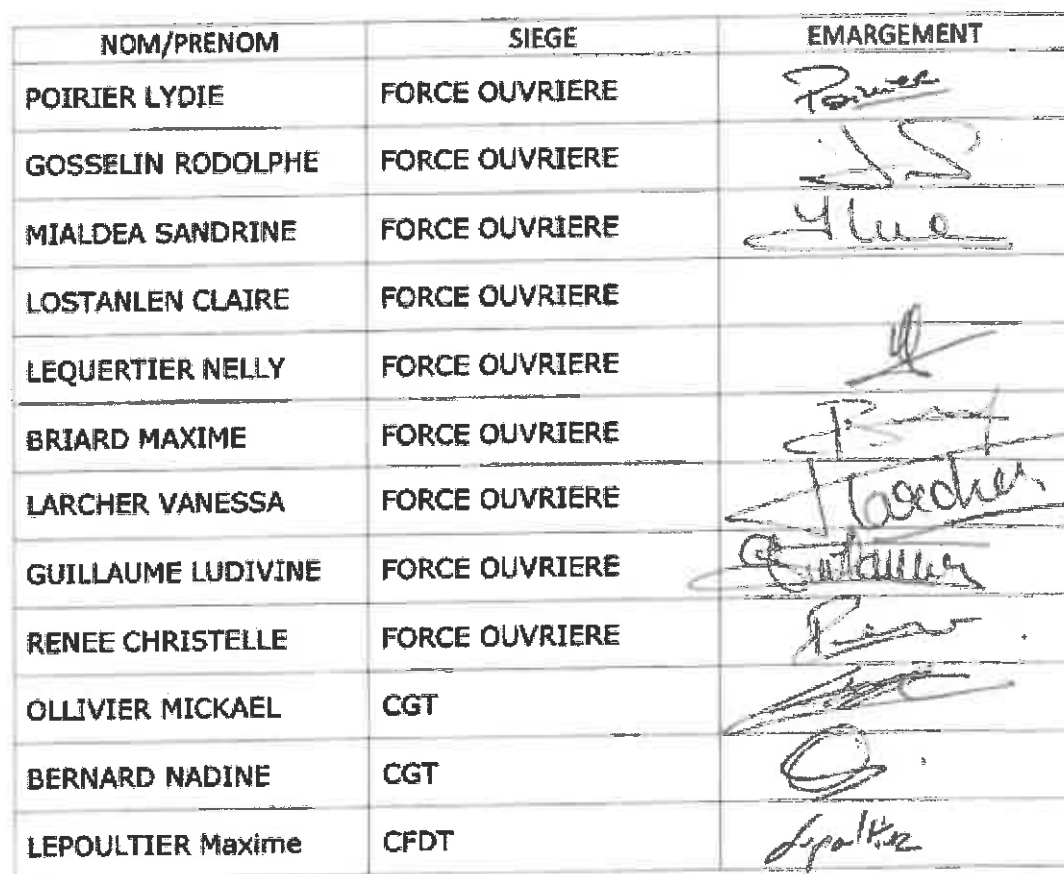 NOM/PRENOM SIEGE EMARGEMENT
POIRIER LYDIE FORCE OUVRIERE Poirier
GOSSELIN RODOLPHE FORCE OUVRIERE
MIALDEA SANDRINE FORCE OUVRIERE
LOSTANLEN CLAIRE FORCE OUVRIERE
LEQUERTIER NELLY FORCE OUVRIERE
BRIARD MAXIME FORCE OUVRIERE
LARCHER VANESSA FORCE OUVRIERE Larcher
GUILLAUME LUDIVINE FORCE OUVRIERE Guillaume
RENEE CHRISTELLE FORCE OUVRIERE
OLLIVIER MICKAEL CGT
BERNARD NADINE CGT
LEPOULTIER Maxime CFDT Lepoultier